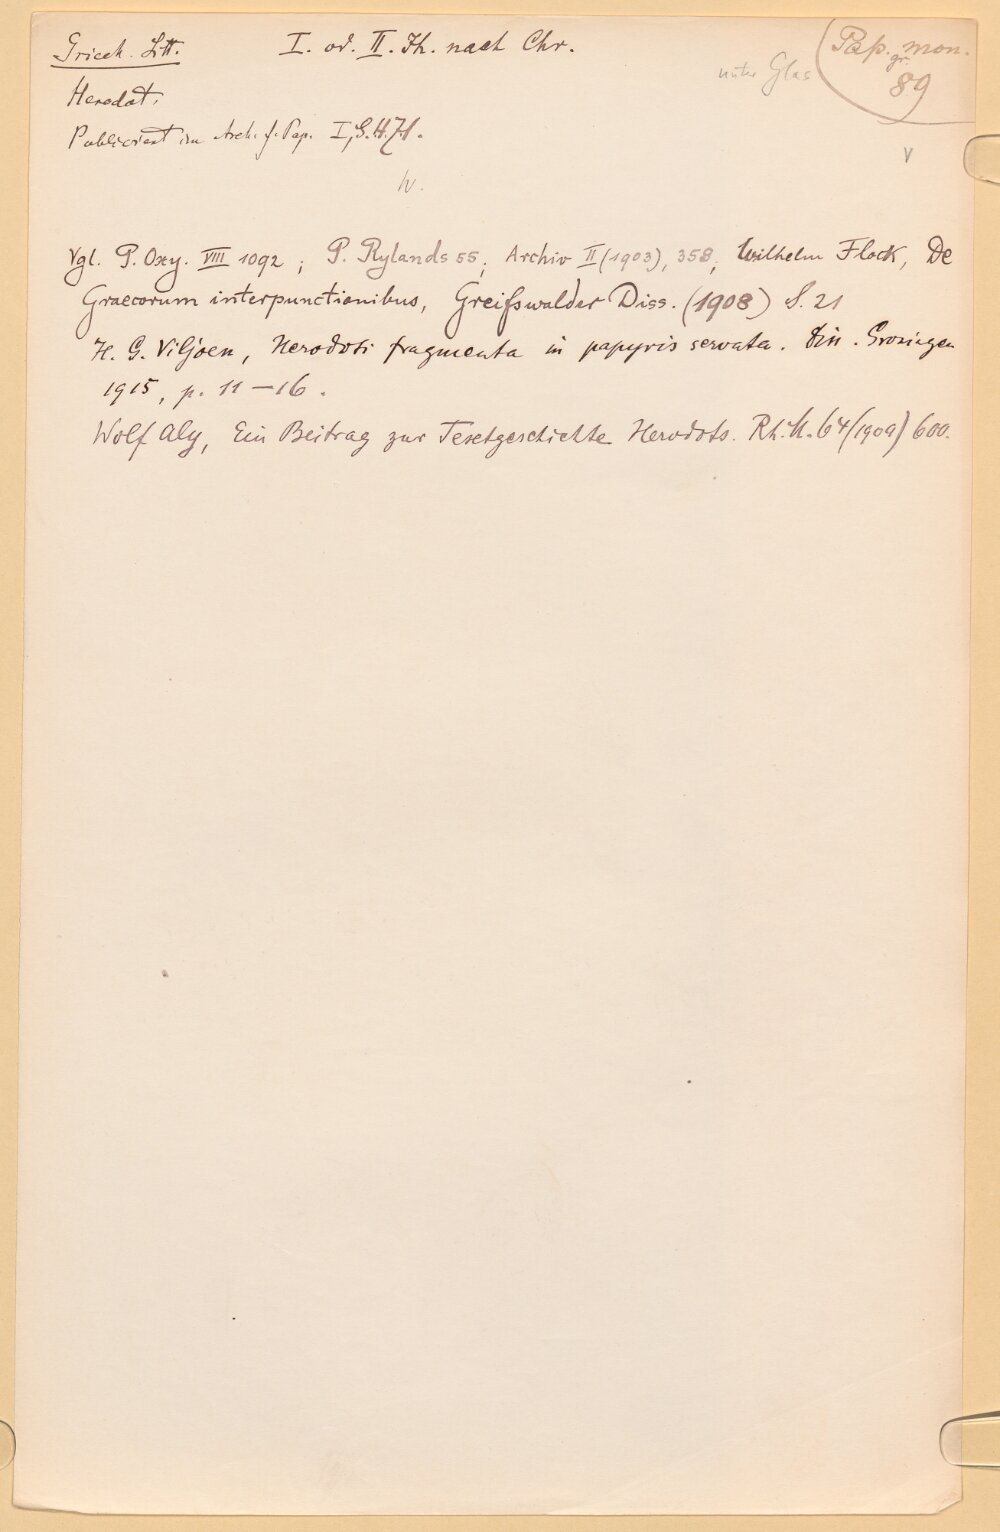 Griech. Litt. I. od. II. Jh. nach Chr. unter Glas Pap. gr. mon. 89
Herodot.
Publiciert im Arch. f. Pap. I, S.
W.
Vgl. P. Oxy. VIII 1092 ; P. Rylands 55 ; Archiv II (1903), 358 ; Wilhelm Flock, De
Graecorum interpunctionibus, Greifswalder Diss. (1908) S. 21
H. G. Viljoen, Herodoti fragmenta in papyris servata. Diss. Groningen
1915, p. 11–16.
Wolf Aly, Ein Beitrag zur Textgeschichte Herodots. Rh. M. 64 (1909) 600.